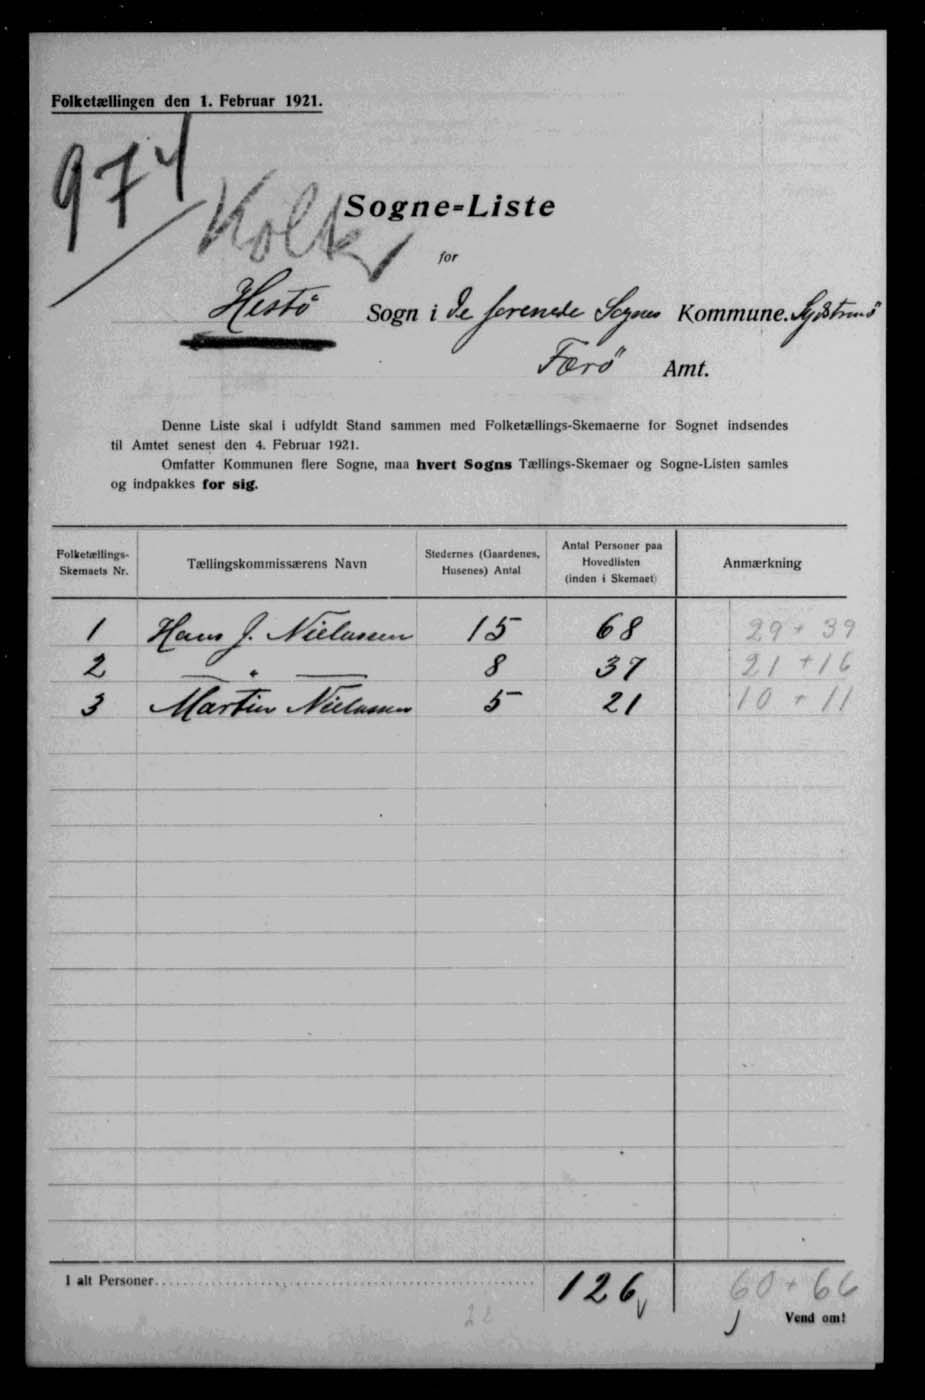 Folketællingen den 1. Februar 1921.
974
Sogne=Liste
for
Hestø Sogn i de forenede Sognes Kommune. Sydstrømø
Færø Amt.
Denne Liste skal i udfyldt Stand sammen med Folketællings-Skemaerne for Sognet indsendes
til Amtet senest den 4. Februar 1921.
Omfatter Kommunen flere Sogne, maa hvert Sogns Tællings-Skemaer og Sogne-Listen samles
og indpakkes for sig.
Folketællings-Skemaets Nr. Tællingskommissærens Navn Stedernes (Gaardenes, Husenes) Antal Antal Personer paa Hovedlisten (inden i Skemaet) Anmærkning
1 Hans J. Nielassen 15 68 29 + 39
2 — " — 8 37 21 + 16
3 Martin Nielassen 5 21 10 + 11
I alt Personer 126 60 + 66
Vend om!